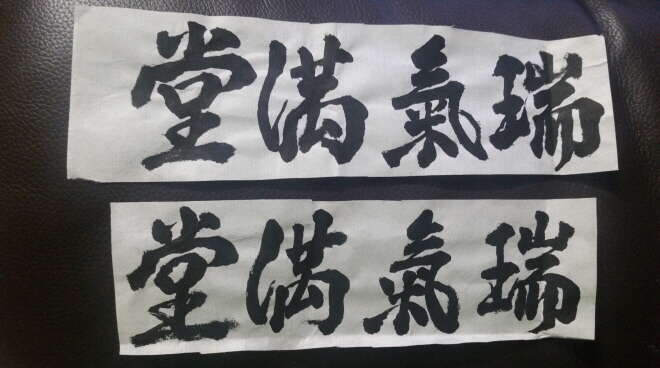 瑞氣滿堂
瑞氣滿堂